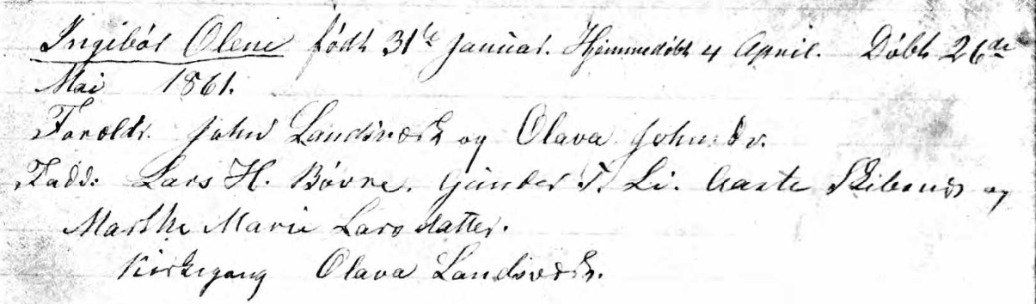 Ingibór Oline født 31te Januar. Hjemmedøbt 4 April. Døbt 26de
Mai 1861.
Foreldr. John Landsværk og Olava Johnsdr.
Fadd: Lars H. Bøvre. Gunder T. Li. Aaste og
Marthe Marie Larsdatter.
Kirkegang Olava Landsværk.